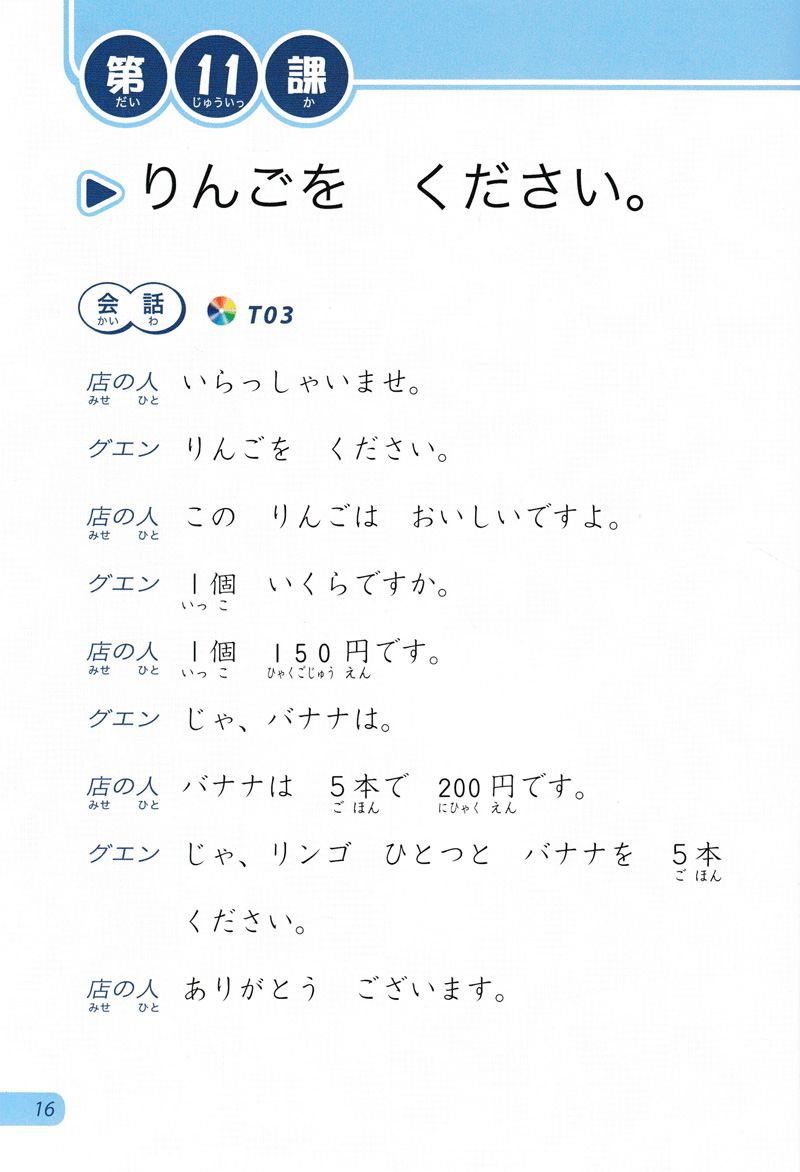 第 11 課
だい じゅういっ か
りんごを　ください。
会 話
かい わ
T03
店の人　いらっしゃいませ。
みせ ひと
グエン　りんごを　ください。
店の人　この　りんごは　おいしいですよ。
みせ ひと
グエン　1個　いくらですか。
いっ こ
店の人　1個　150円です。
みせ ひと いっ こ ひゃくごじゅう えん
グエン　じゃ、バナナは。
店の人　バナナは　5本で　200円です。
みせ ひと ご ほん にひゃく えん
グエン　じゃ、リンゴ　ひとつと　バナナを　5本
ご ほん
ください。
店の人　ありがとう　ございます。
みせ ひと
16